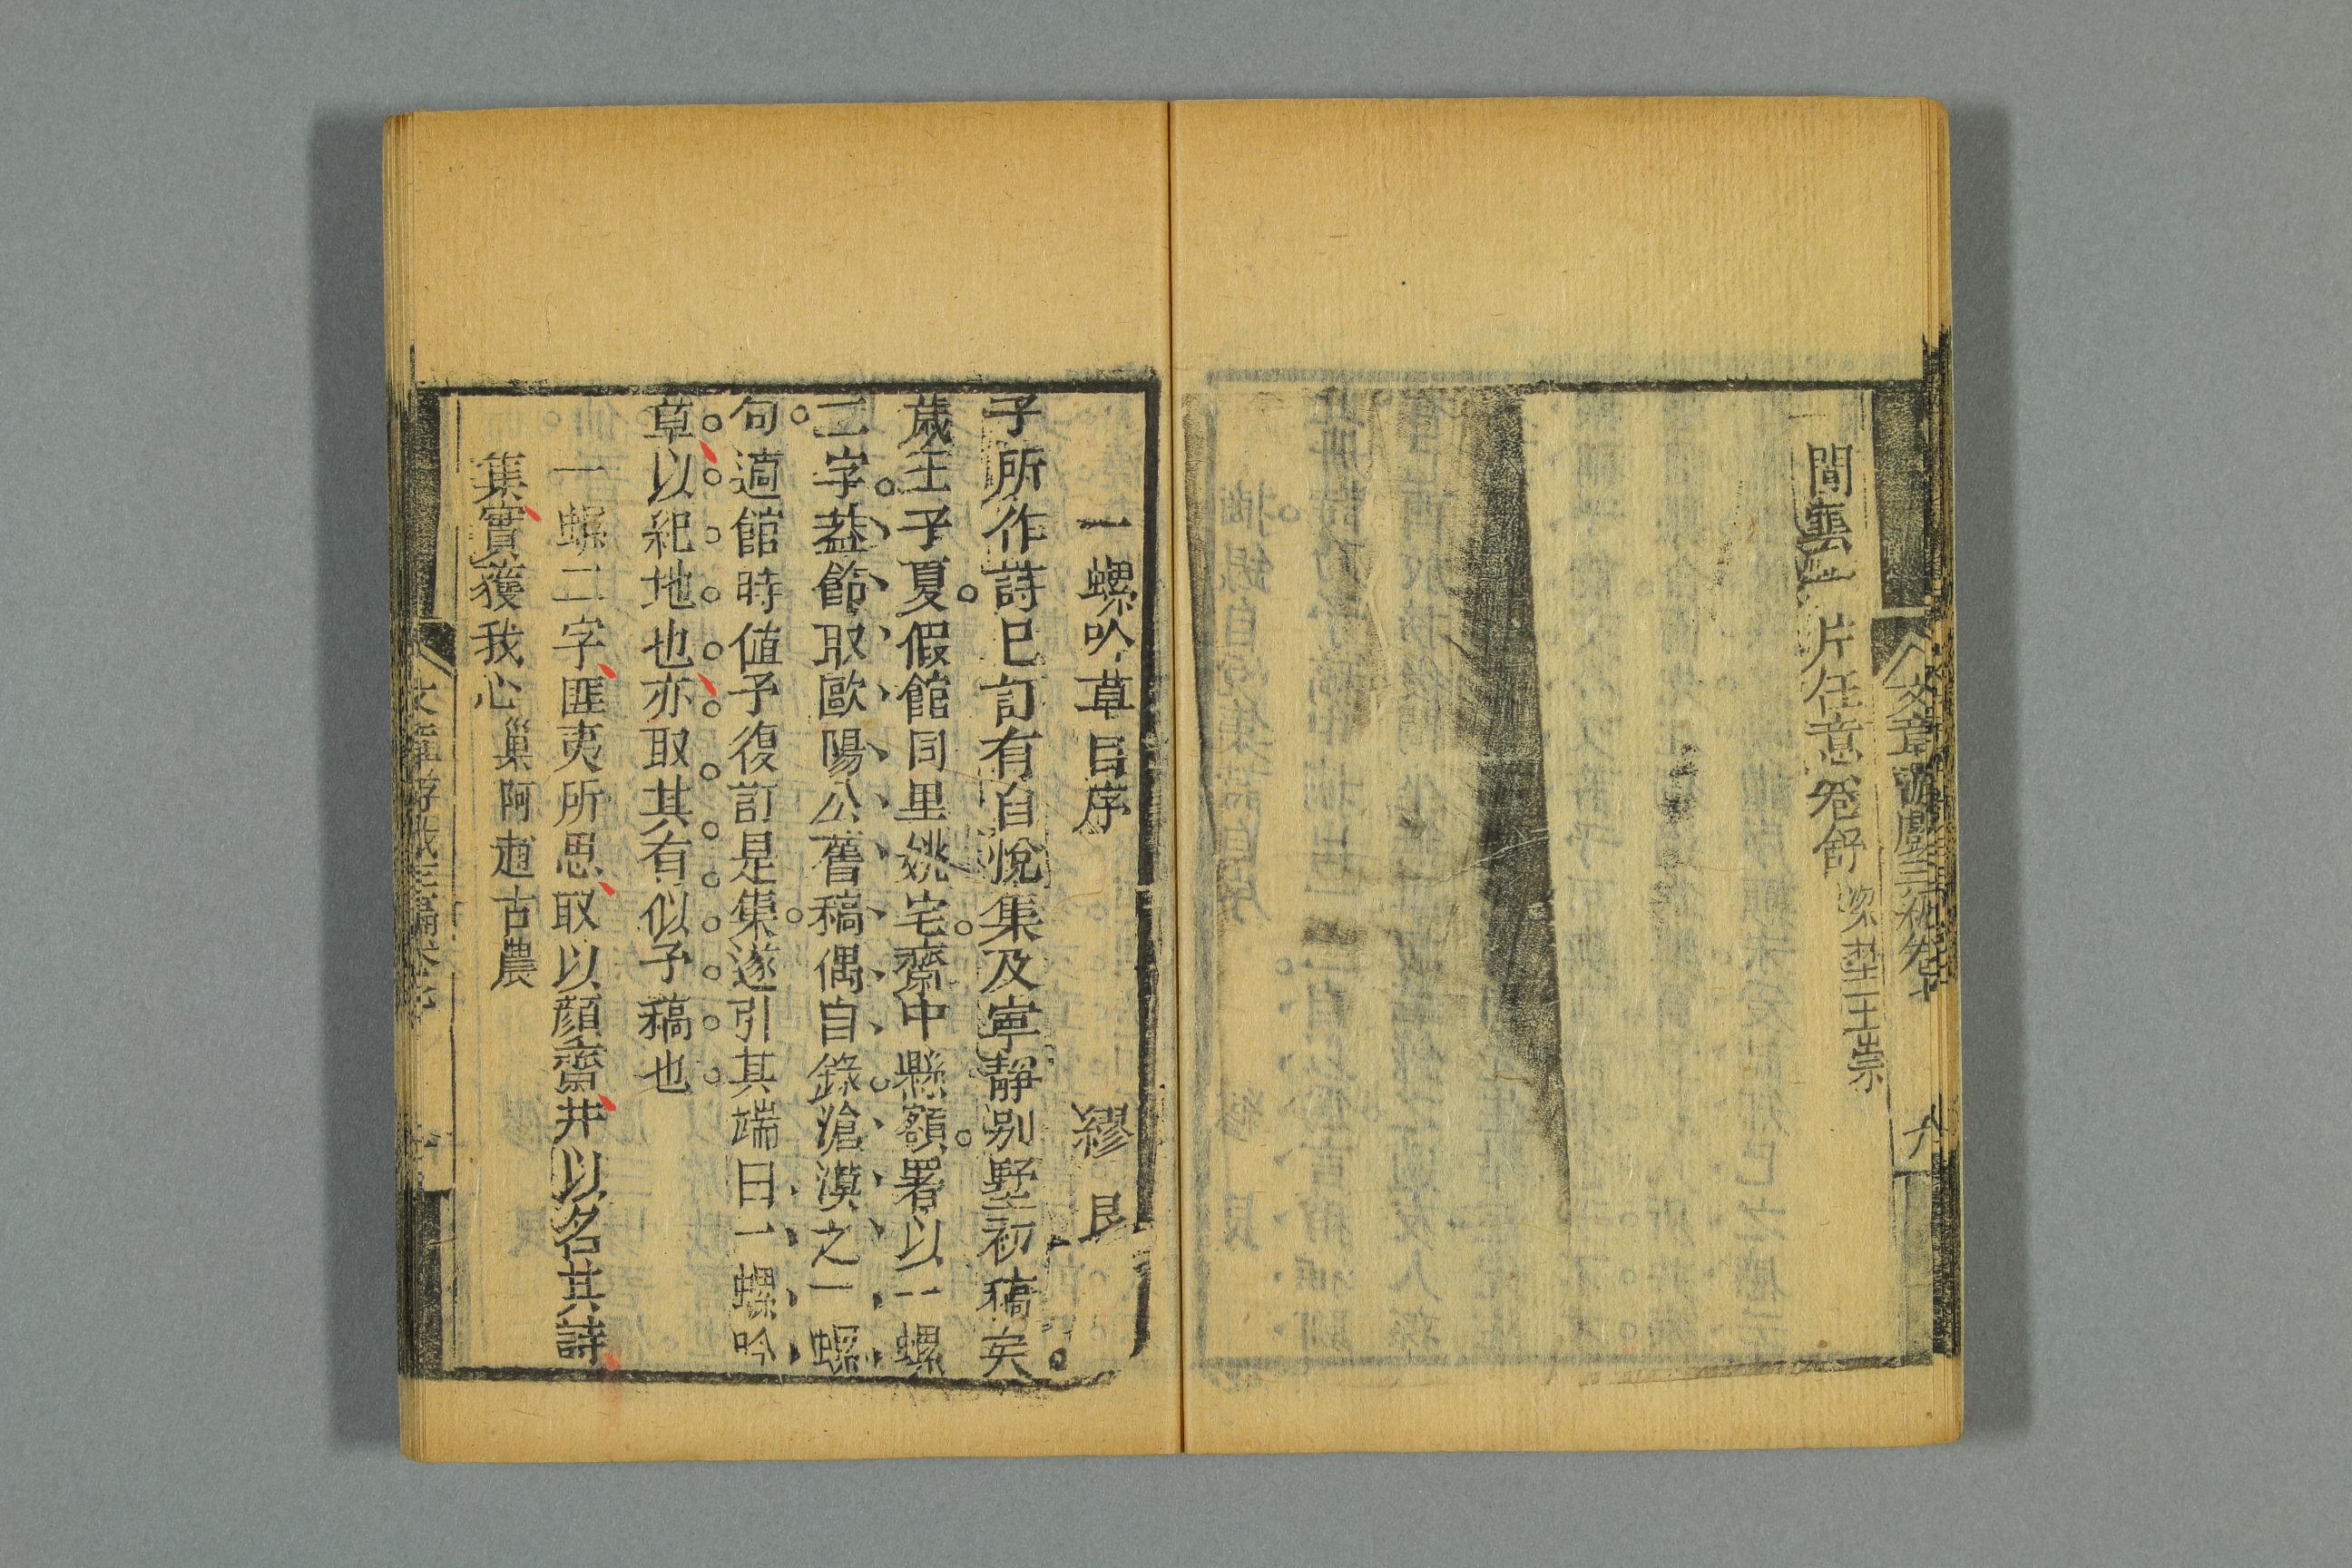 間雲一片任意卷舒 㵎埜王崇
一螺吟草自序 繆艮
予所作詩已訂有自悅集及寧靜别墅初稿矣
歲壬子夏假館同里姚宅齋中縣額署以一螺
二字葢節取歐陽公舊稿偶自錄滄溟之一螺
句適館時値予復訂是集遂引其端曰一螺吟
草以紀地也亦取其有似予稿也
一螺二字匪夷所思取以顔齋并以名其詩
集實獲我心 巢阿趙古農